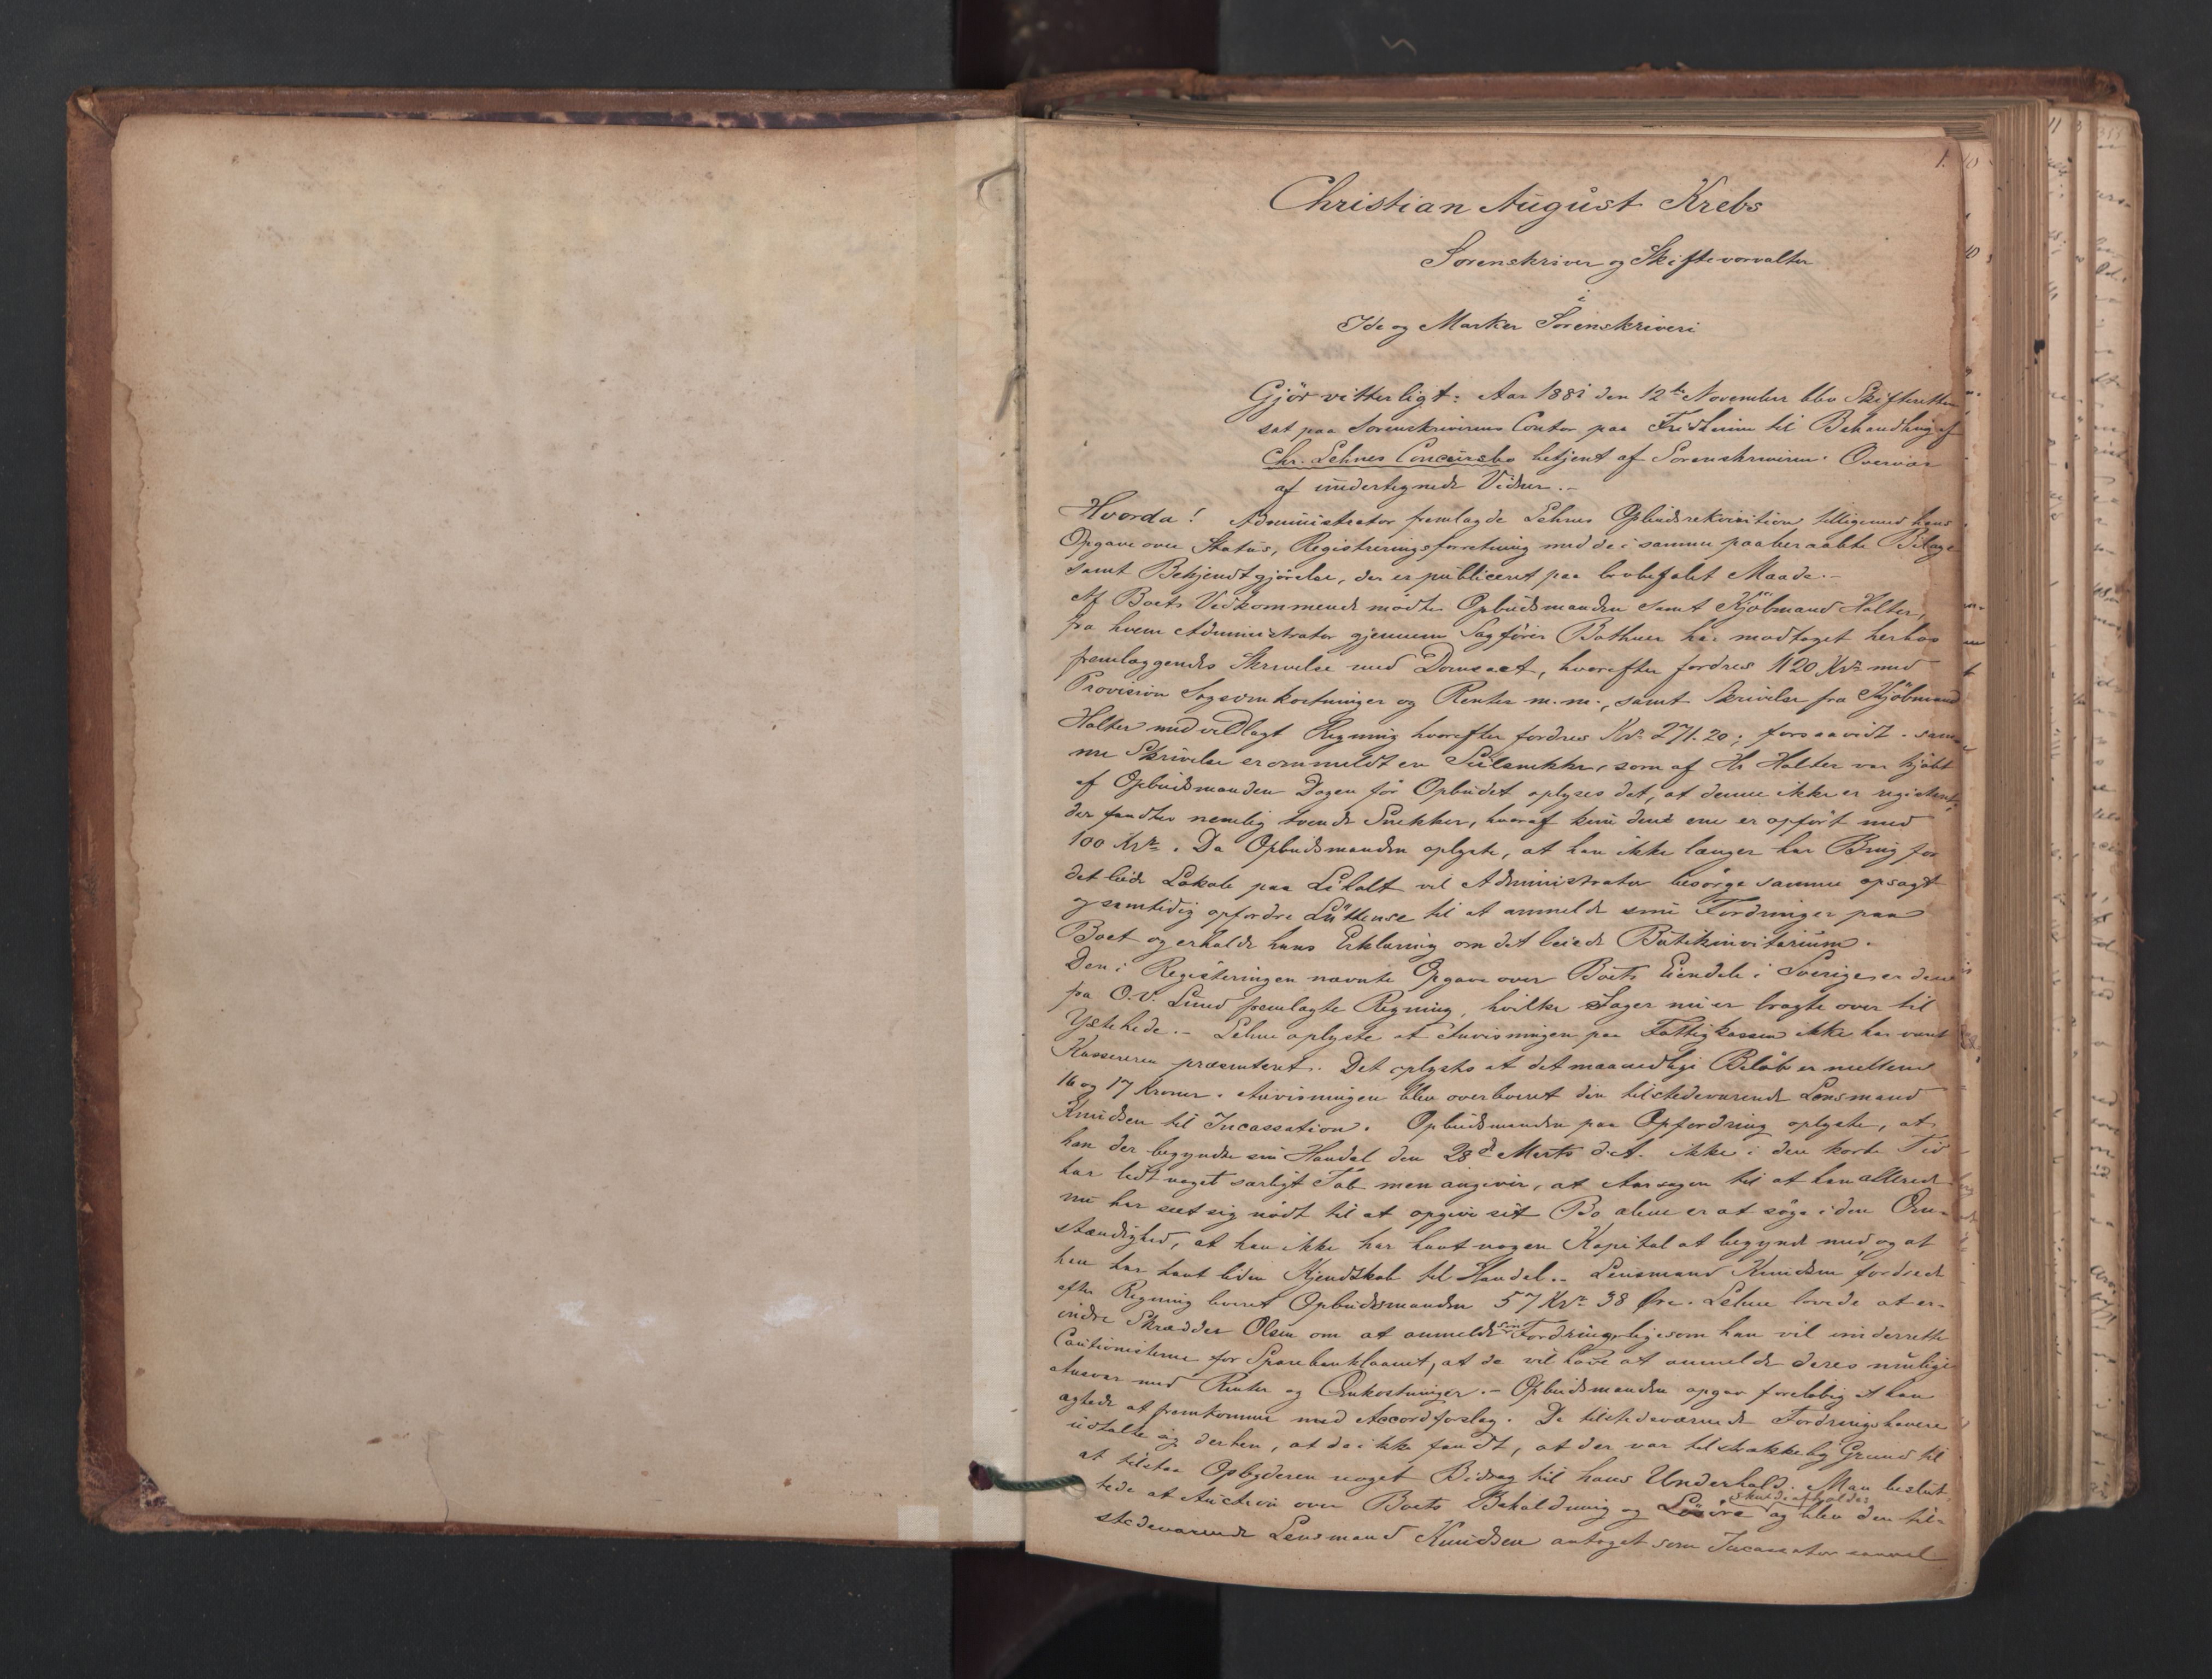 1.
Christian August Krebs
Sorenskriver og Skifteforvalter
i
Ide og Marker Sorenskriveri
Gjör vitterligt: Aar 1881 den 12te November blev Skifteretten
sat paa Sorenskriverens Contor paa Fridheim til Behandling af
Chr. Lehnes Concursbo betjent af Sorenskriveren. Overvær
af undertegnede Vidner.-
Hvorda! Administrator fremlagde Lehnes Opbudsrekvisition tilligemed hans
Opgave over Status, Registreringsforretning med de i samme paaberaabte Bilage
samt Bekjendtgjörelse, der er publiceret paa lovbefalet Maade.-
Af Boets Vedkommende mödte Opbudsmanden samt Kjöbmand Holter,
fra hvem Administrator gjennem Sagförer Bothner har modtaget herhos
fremlæggendes Skrivelse med Domsact, hvorefter fordres 1120 Kr. med
Provision Sagsomkostninger og Renter m.m., samt Skrivelse fra Kjöbmand
Holter med vedlagt Regning hvorefter fordres Kr. 271.20; forsaavidt i sam-
me Skrivelse er ommeldt en Snekke, som af Hr Holter var kjöbt
af Opbudsmanden Dagen för Opbudet oplyses det, at denne ikke er registreret,
der fandtes nemlig tvende Snekker, hvoraf kun den ene er opfört med
100 Kr. Da Opbudsmanden oplyste, at han ikke længer har Brug for
det leiede Lokale paa Liholt vil Administrator besörge samme opsagt
og samtidig opfordre Lüttense til at anmelde sine Fordringer paa
Boet og erholde hans Erklæring om det leiede Butikinvitarium.
Den i Registeringen nævnte Opgave over Boets Eiendele i Sverige er den
fra O.V. Lund fremlagte Regning, hvilke Sager nu er bragte over til
Ystehede.- Lehne oplyste at Anvisningen paa Fattigkassen ikke har været
Kassereren præsenteret. Det oplystes at det maanedlige Belöb er mellem
16 og 17 Kroner. Anvisningen blev overleveret den tilstedeværende Lensmand
Knudsen til Incassation. Opbudsmanden paa Opfordring oplyste, at
han der begyndte sin Handel den 28de Marts d.A. ikke i den korte Tid
har lidt noget særligt Tab men angiver, at Aarsagen til at han allerede
nu har seet sig nödt til at opgive sit Bo alene er at söge i den Om-
stændighed, at han ikke har havt nogen Kapital at begynde med og at
han har havt liden Kjendskab til Handel.- Lensmand Knudsen fordrede
efter Regning leveret Opbudsmanden 57 Kr. 38 Öre. Lehne lovede at er-
indre Skrædder Olsen om at anmelde sin Fordring, ligesom han vil underrette
Cautionisterne for Sparebanklaanet, at de vil have at anmelde deres mulige
Ansvar med Renter og Omkostninger.- Opbudsmanden opgav foreløbig at han
agtede at fremkomme med Accordforslag. De tilstedeværende Fordringshavere
udtalte sig derhen, at de ikke fandt, at der var tilstrækkelig Grund til
at tilstaa Opbyderen noget Bidrag til hans Underhold. Man beslut-
tede at Auction over Boets Beholdning og Lösöre skulde afholdes og blev den til-
stedeværende Lensmand Knudsen antaget som Incassator saavel